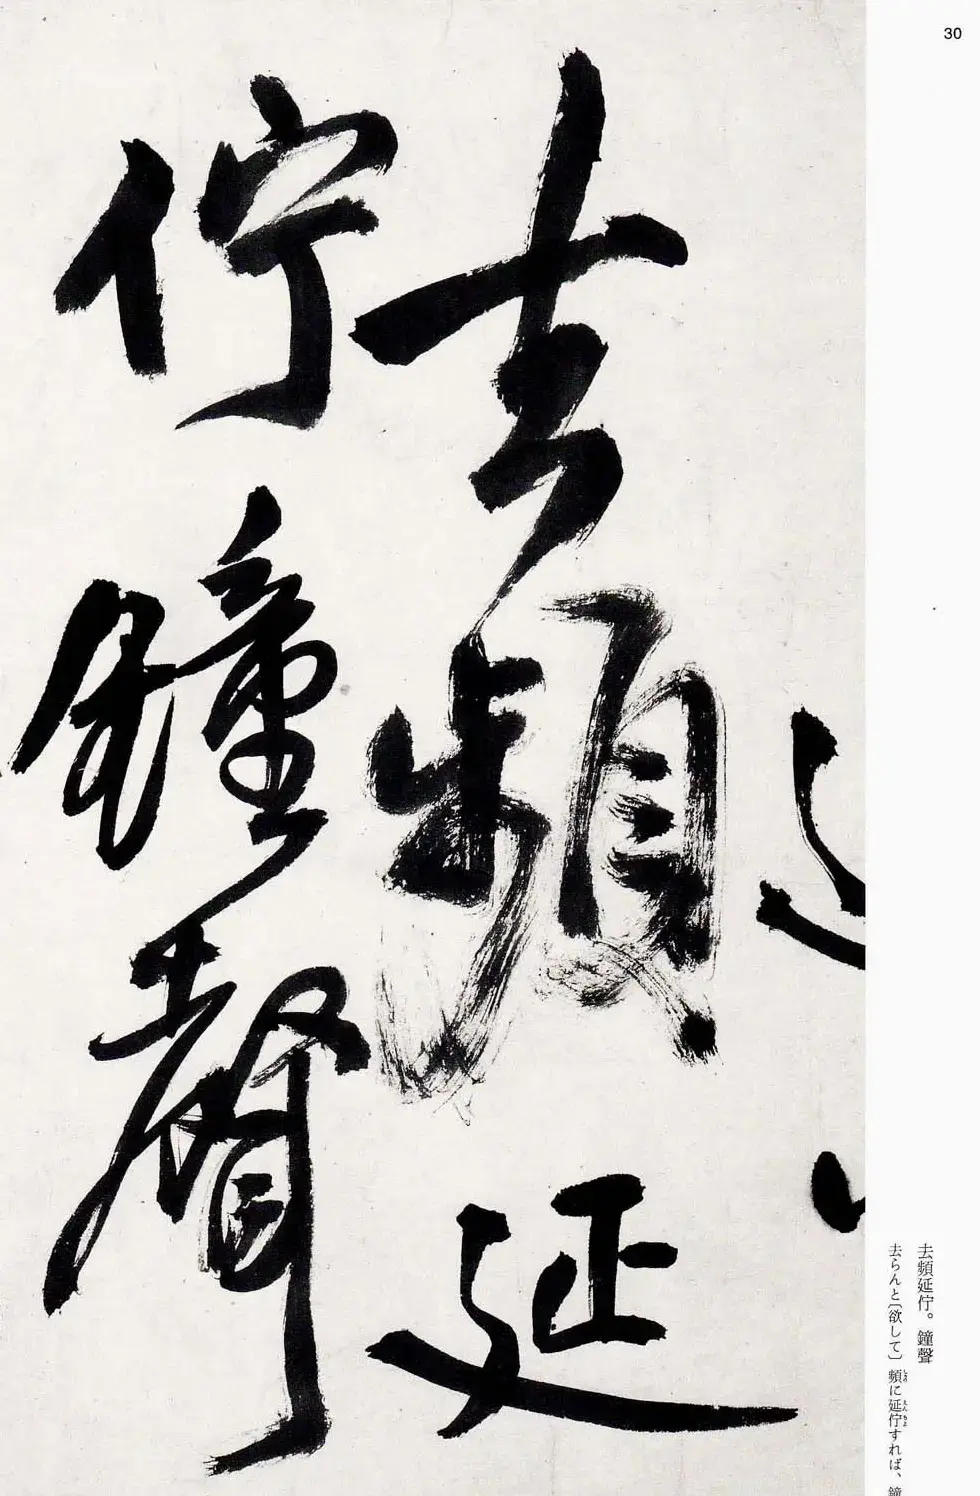 30
去頻延
佇鐘聲
去頻延佇。鐘聲
去らんと〔欲して〕頻に延佇すれば、鐘